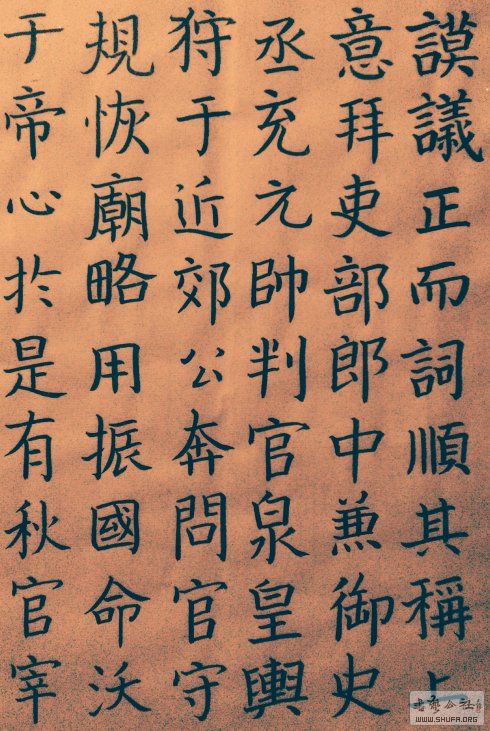 謨議正而詞順其稱上
意拜吏部郎中兼御史
丞充元帥判官泉皇輿
狩于近郊公奔問官守
規恢廟略用振國命沃
于帝心於是有秋官宰
WWW.SHUFA.ORG